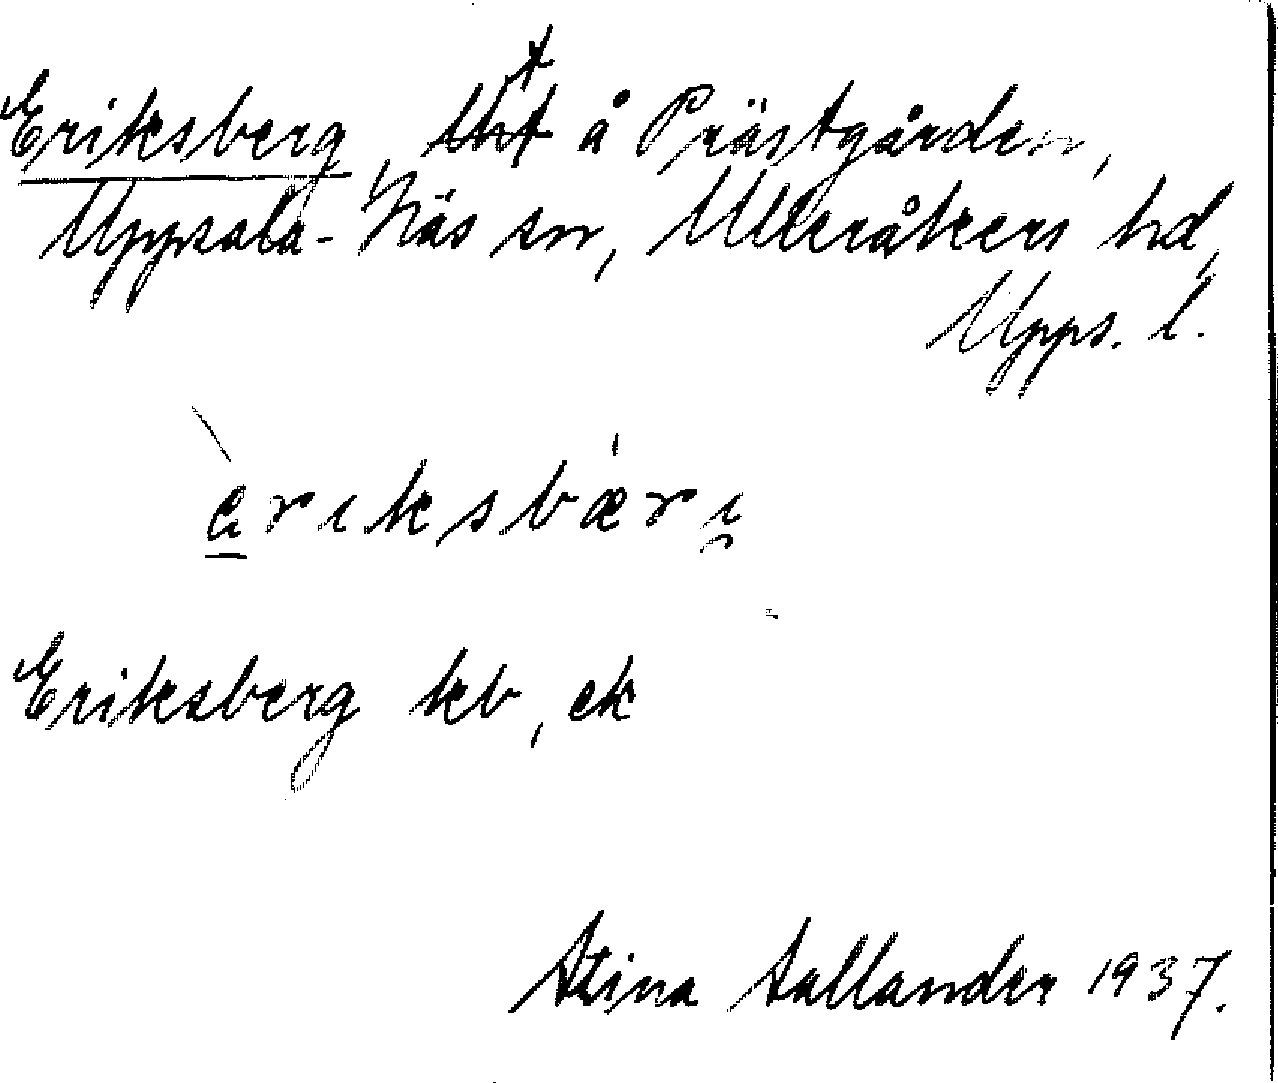 Eriksberg, t å Prästgården,
Uppsala-Näs sn, Ulleråkers hd,
Upps. l.
èriksbæ'ri̯
Eriksberg kb, ek
Stina Sallander 1937.